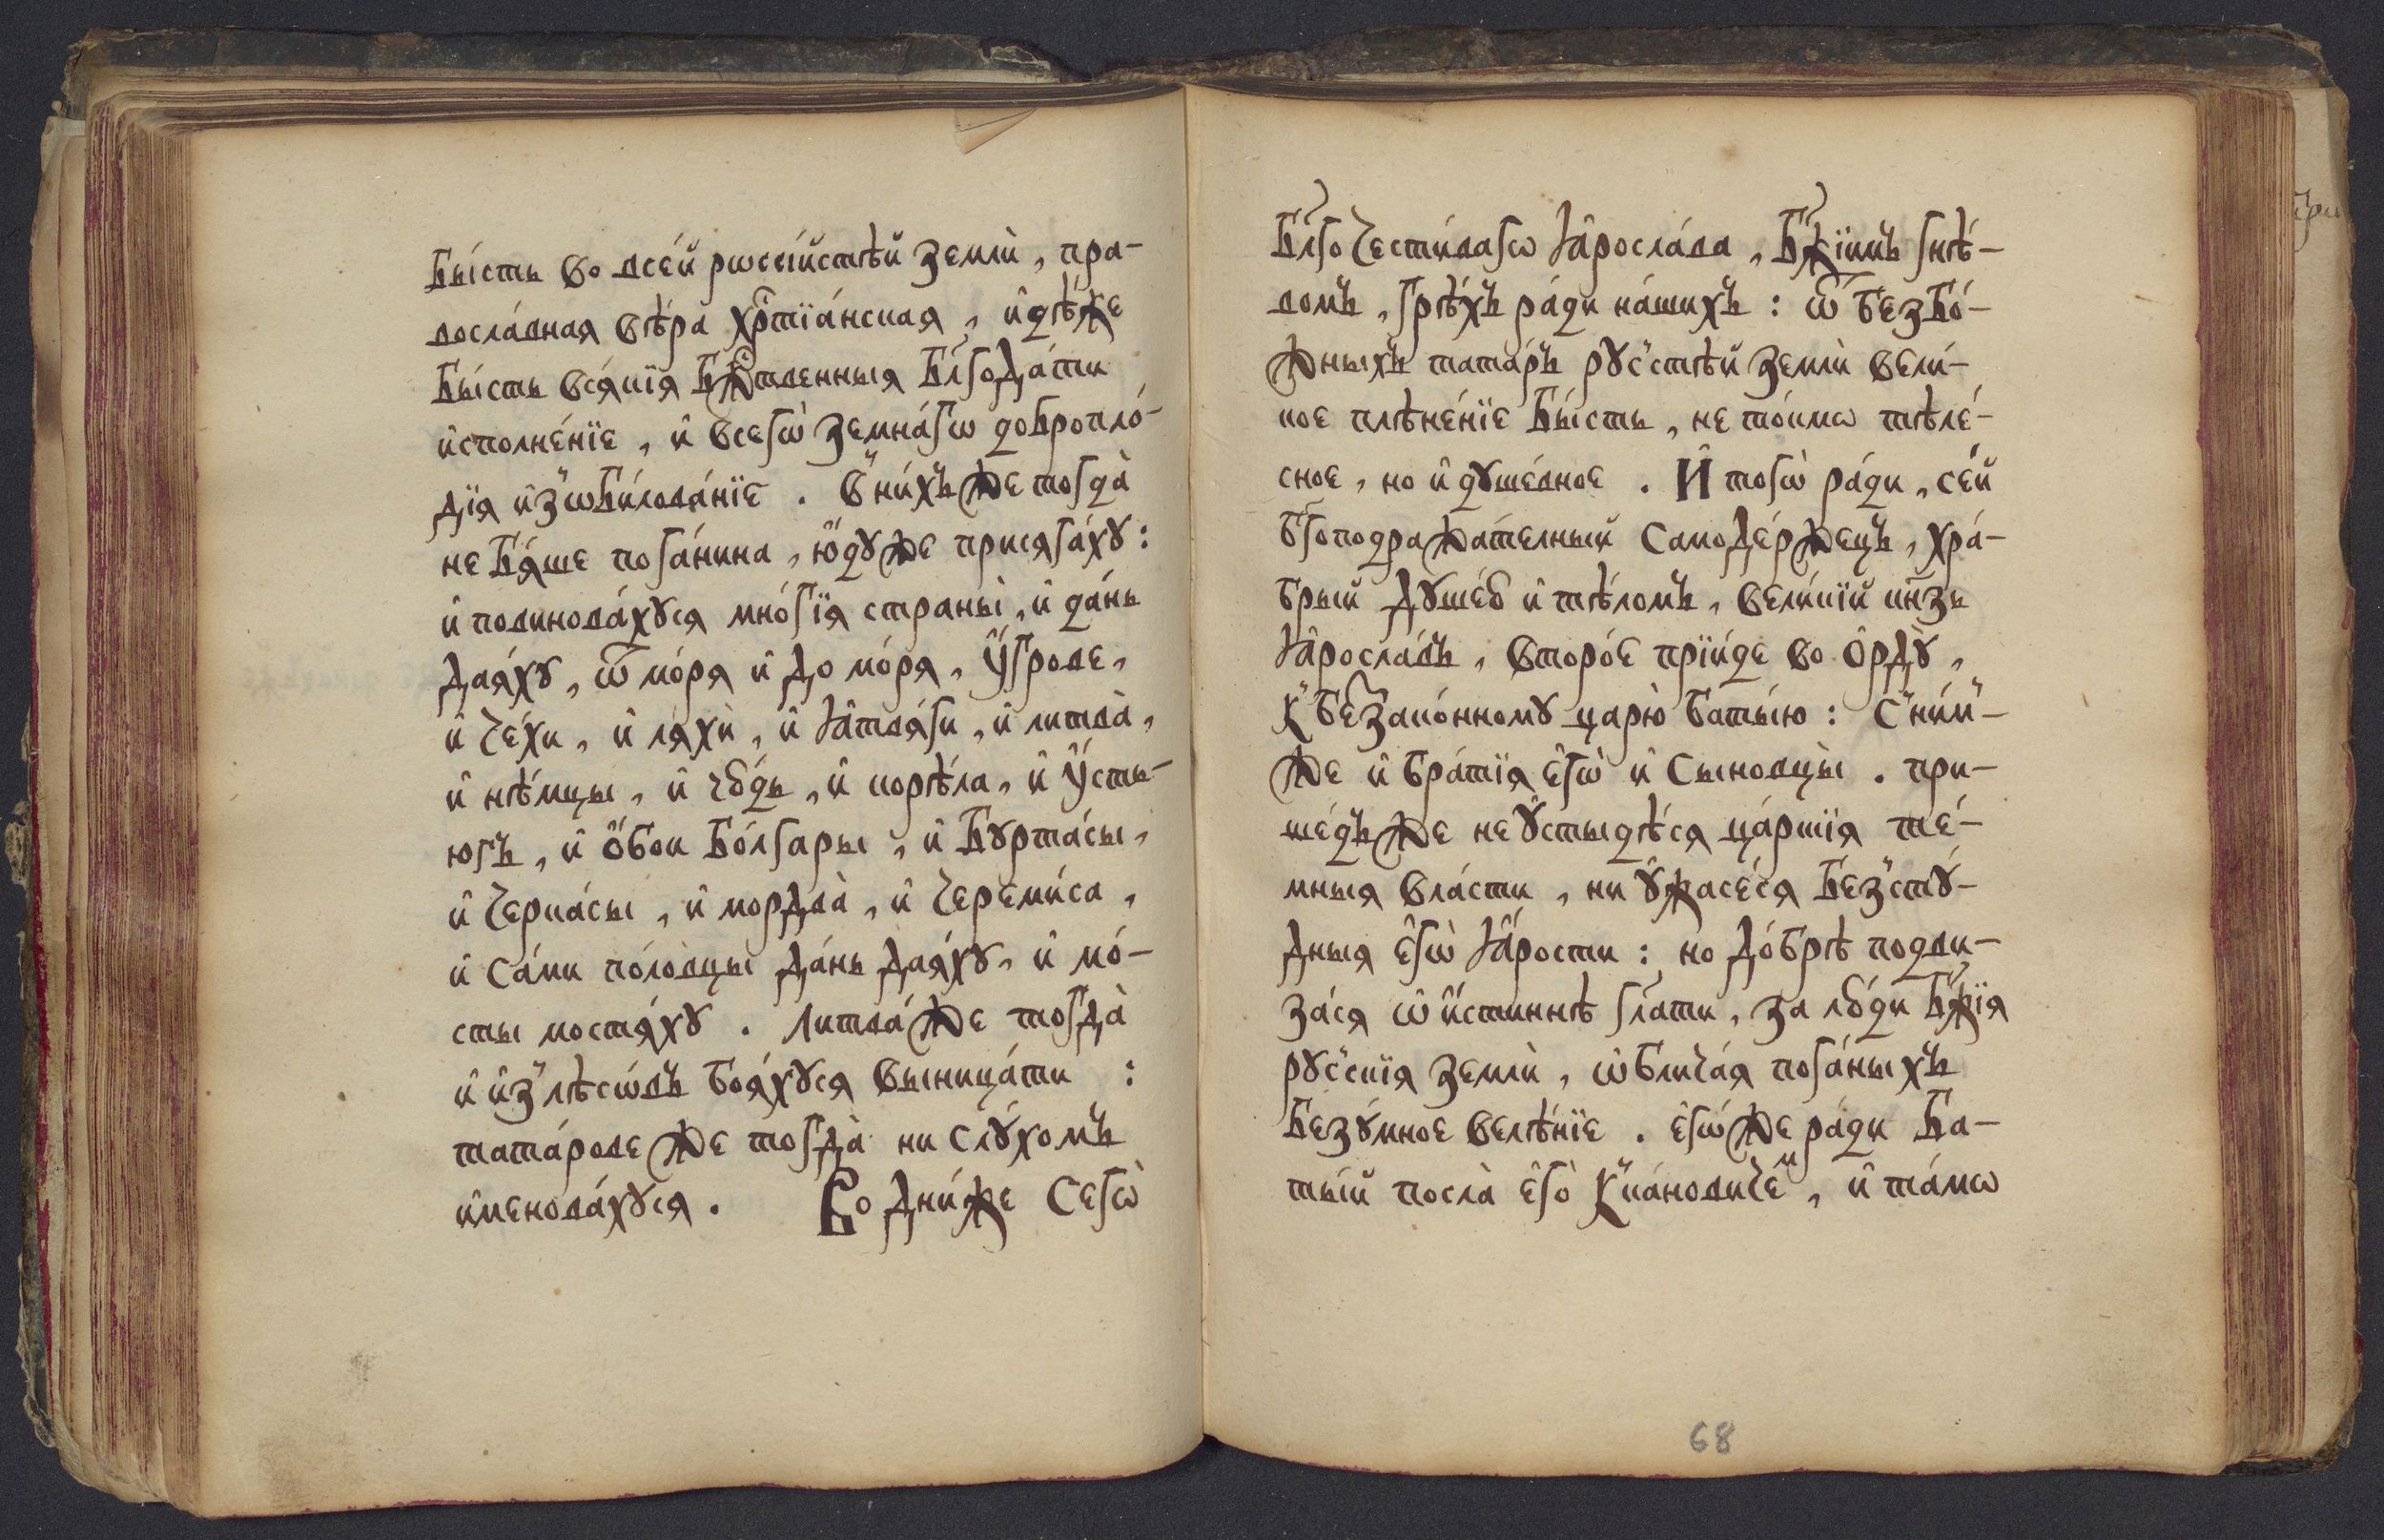 Бы́сть во всéй рѡссíйстѣй землѝ, пра-
вослáвная вѣ́ра хр҇тïáнская, и҆дѣ́же
Бы́сть вся́кïя Бж҇твенныя Бл҃года́ти
и҆сполнéнïе, и҆ всегѡ̀ земнáгѡ доброплó-
дïя и҆з̾ѡби́лованïе. В̾ ни́хъ же тогда̀
не бя́ше погáнина, ю҆́дуже присягáхꙋ:
и҆ повиновáхꙋся мнóгïя страны̀, и҆ дáнь
даяхꙋ, ѿ мóря и҆ до мóря, У҆́грове,
и҆ Чéхи, и҆ ляхѝ, и҆ Ꙗ҆твя́ги, и҆ литва̀,
и҆ нѣ́мцы, и҆ чю́дь, и҆ корѣ́ла, и҆ У҆́сть-
югъ, и҆ ѻ҆́бои Бóлгары, и҆ Бꙋртáсы,
и҆ Черкáсы, и҆ мордва̀, и҆ Череми́са,
и҆ сáми пóловцы дáнь даяхꙋ, и҆ мó-
сты мостя́хꙋ. Литвáже тогда̀
и҆ и҆з̾ лѣсѡ́въ боя́хꙋся выницáти:
татáрове же тогда̀ ни слꙋ́хомъ
и҆меновáхꙋся. Во дни́же Сегѡ̀
Бл҃гочести́вагѡ Ꙗ҆рослáва, Бж҃їимъ гнѣ́-
вомъ, грѣ́хъ рáди нáшихъ: ѿ безбó-
жныхъ татáръ рꙋс̾стѣй землѝ вели́-
кое плѣнéнïе Бы́сть, не тóкмѡ тѣлé-
сное, но и҆ дꙋшéвное. И҆ тогѡ̀ рáди, сéй
бг҃оподражáтелный самодéржецъ, хрá-
брый дꙋшéю и҆ тѣ́ломъ, вели́кïй кн҃зь
Ꙗ҆рослáвъ, вторóе прïи́де во ѻ҆рдꙋ̀,
К̾ беззакóнномꙋ царю̀ Баты́ю: С̾ ни́м̾-
же и҆ брáтïя є҆гѡ̀ и҆ сыновцы̀. при-
шéдъ же не ꙋ҆стыдѣ́ся цáрскïя тé-
мныя влáсти, ни ꙋ҆жасéся без̾стꙋ́-
дныя є҆гѡ̀ ꙗ҆́рости: но дóбрѣ подви-
зáся ѡ҆ и҆́стиннѣ гл҃ати, за лю́ди Бж҃ïя
рꙋс̾скïя землѝ, ѡ҆бличáя погáныхъ
безꙋ́мное велѣ́нïе. є҆гѡ́же рáди Ба-
ты́й посла̀ є҆го̀ К̾ кáновичем, и҆ тáмѡ
68